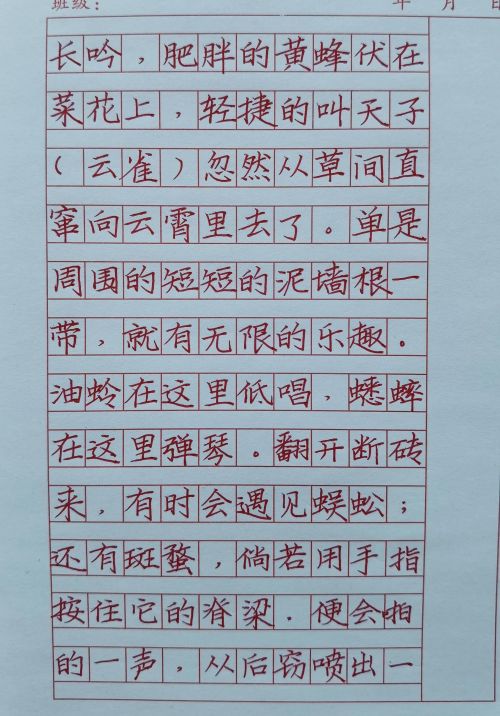 班级: 年 月 日
长吟，肥胖的黄蜂伏在
菜花上，轻捷的叫天子
(云雀)忽然从草间直
窜向云霄里去了。单是
周围的短短的泥墙根一
带，就有无限的乐趣。
油蛉在这里低唱，蟋蟀
在这里弹琴。翻开断砖
来，有时会遇见蜈蚣；
还有斑蝥，倘若用手指
按住它的脊梁．便会啪
的一声，从后窍喷出一